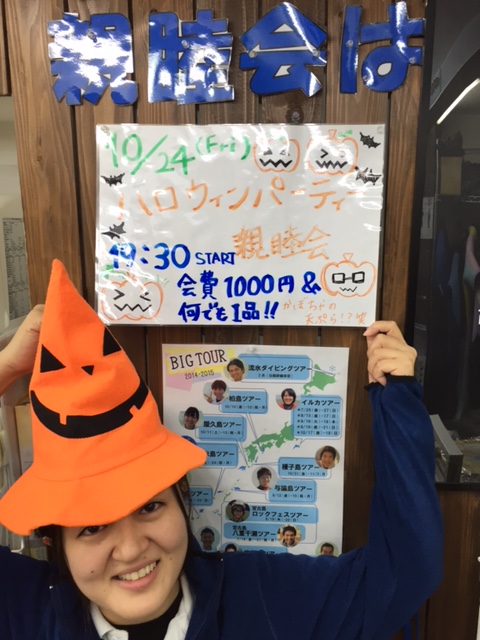 親睦会は
10/24(Fri)
ハロウィンパーティー
19:30 START 親睦会
会費1000円&
何でも1品!!
かぼちゃの
天ぷら!?笑
BIG TOUR
2014-2015
流氷ダイビングツアー
柏島ツアー
イルカツアー
屋久島ツアー
島ツアー
種子島ツアー
ツアー
与論島ツアー
宮古島
ロックフェスツアー
宮古島
八重干瀬ツアー